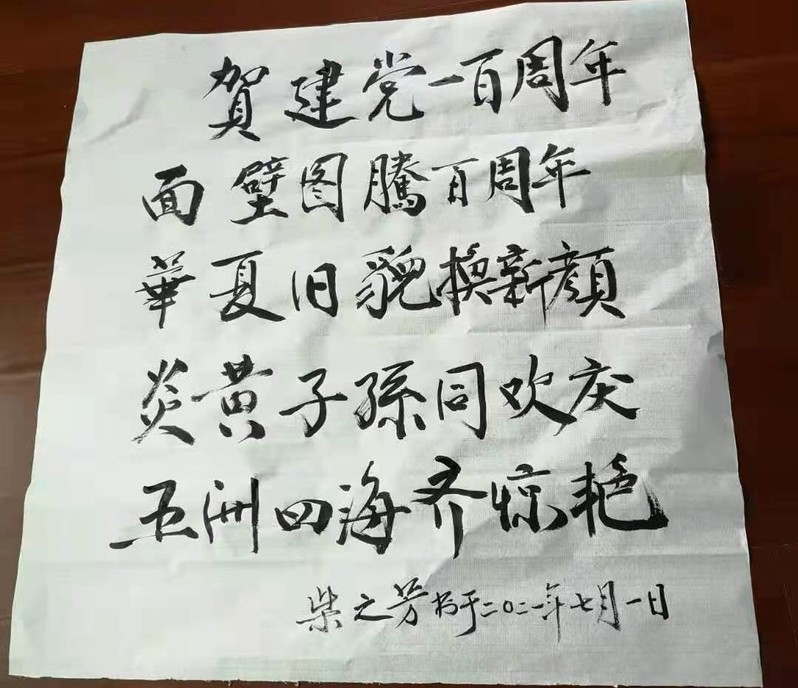 賀建党一百周年
面壁图騰百周年
華夏旧貌换新颜
炎黄子孫同欢庆
五洲四海齐惊艳
柴之芳书于二〇二一年七月一日